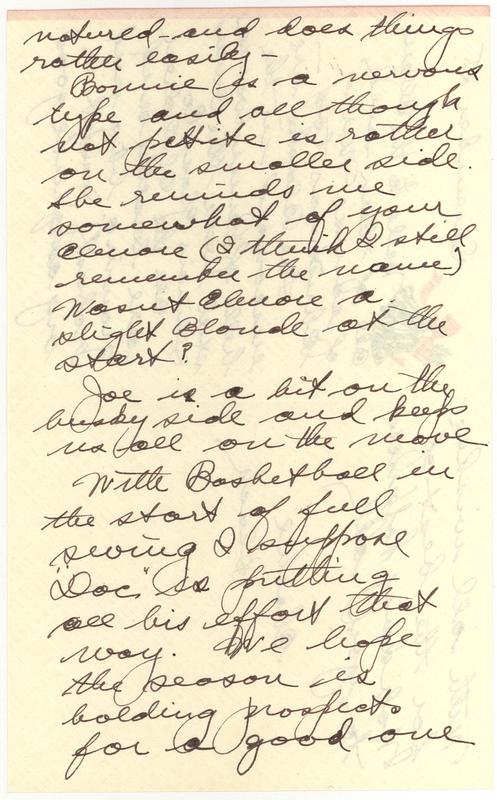 natured - and does things
rather easily -
Bonnie is a nervous
type and all though
not pettite is rather
on the smaller side.
She reminds me
somewhat of your
Elenore (I think I still
remember the name)
Wasn't Elenore a
slight Blonde at the
start?
Joe is a bit on the
husky side and keeps
us all on the move
With Basketball in
the start of full
swing I suppose
"Doc" is putting
all his effort that
way. We hope
the season is
holding prospects
for a good one